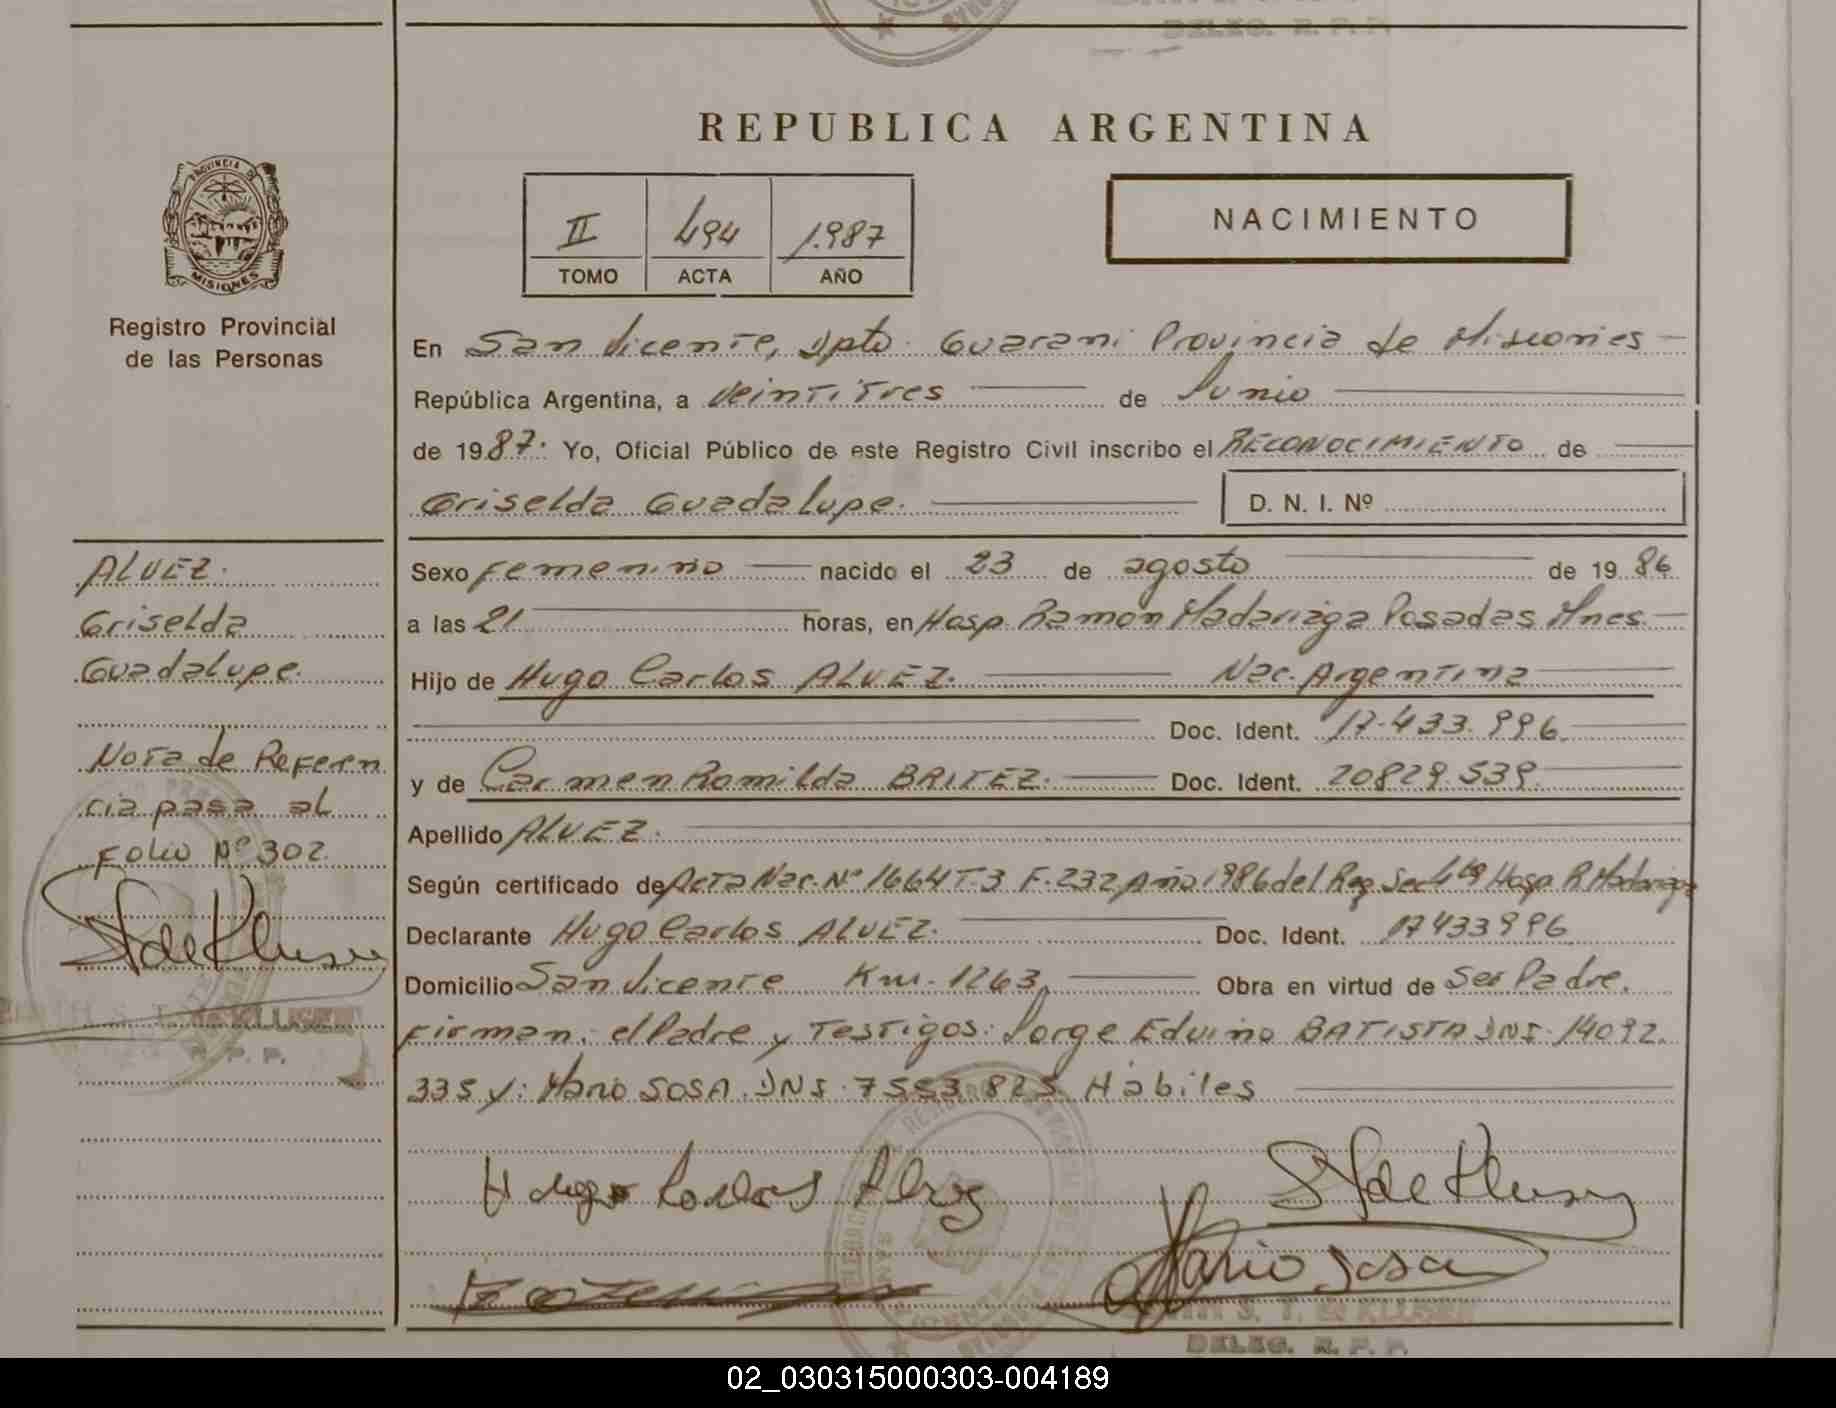 REPUBLICA ARGENTINA
II 494 1.987
TOMO ACTA AÑO
NACIMIENTO
PROVINCIA DE
MISIONES
Registro Provincial
de las Personas
En San Vicente, Dpto. Guarani Provincia de Misiones
República Argentina, a Veintitres de Junio
de 1987. Yo, Oficial Público de este Registro Civil inscribo el RECONOCIMIENTO de
Griselda Guadalupe. D. N. I. Nº
ALVEZ.
Griselda
Guadalupe.
Nota de Referen
cia pasa al
Folio Nº 302.
Sexo Femenino nacido el 23 de agosto de 1986
a las 21 horas, en Hosp. Ramon Madariaga Posadas Mnes.
Hijo de Hugo Carlos ALVEZ. Nac. Argentina
Doc. Ident. 17.433.996.
y de Carmen Romilda BRITEZ. Doc. Ident. 20829.539.
Apellido ALVEZ.
Según certificado de Acta Nac. Nº 1664 T.3 F.232 Año 1986 del Reg. Hosp. R. Madariaga
Declarante Hugo Carlos ALVEZ. Doc. Ident. 17433996
Domicilio San Vicente Km. 1263, Obra en virtud de Ser Padre.
Firman: el Padre y Testigos: Jorge Eduino BATISTA DNI. 14092.
335 y: Mario SOSA. DNI. 7553.825. Hábiles
Hugo Carlos Alvez
Mario Sosa
DELEG. R. P. P.
02_030315000303-004189